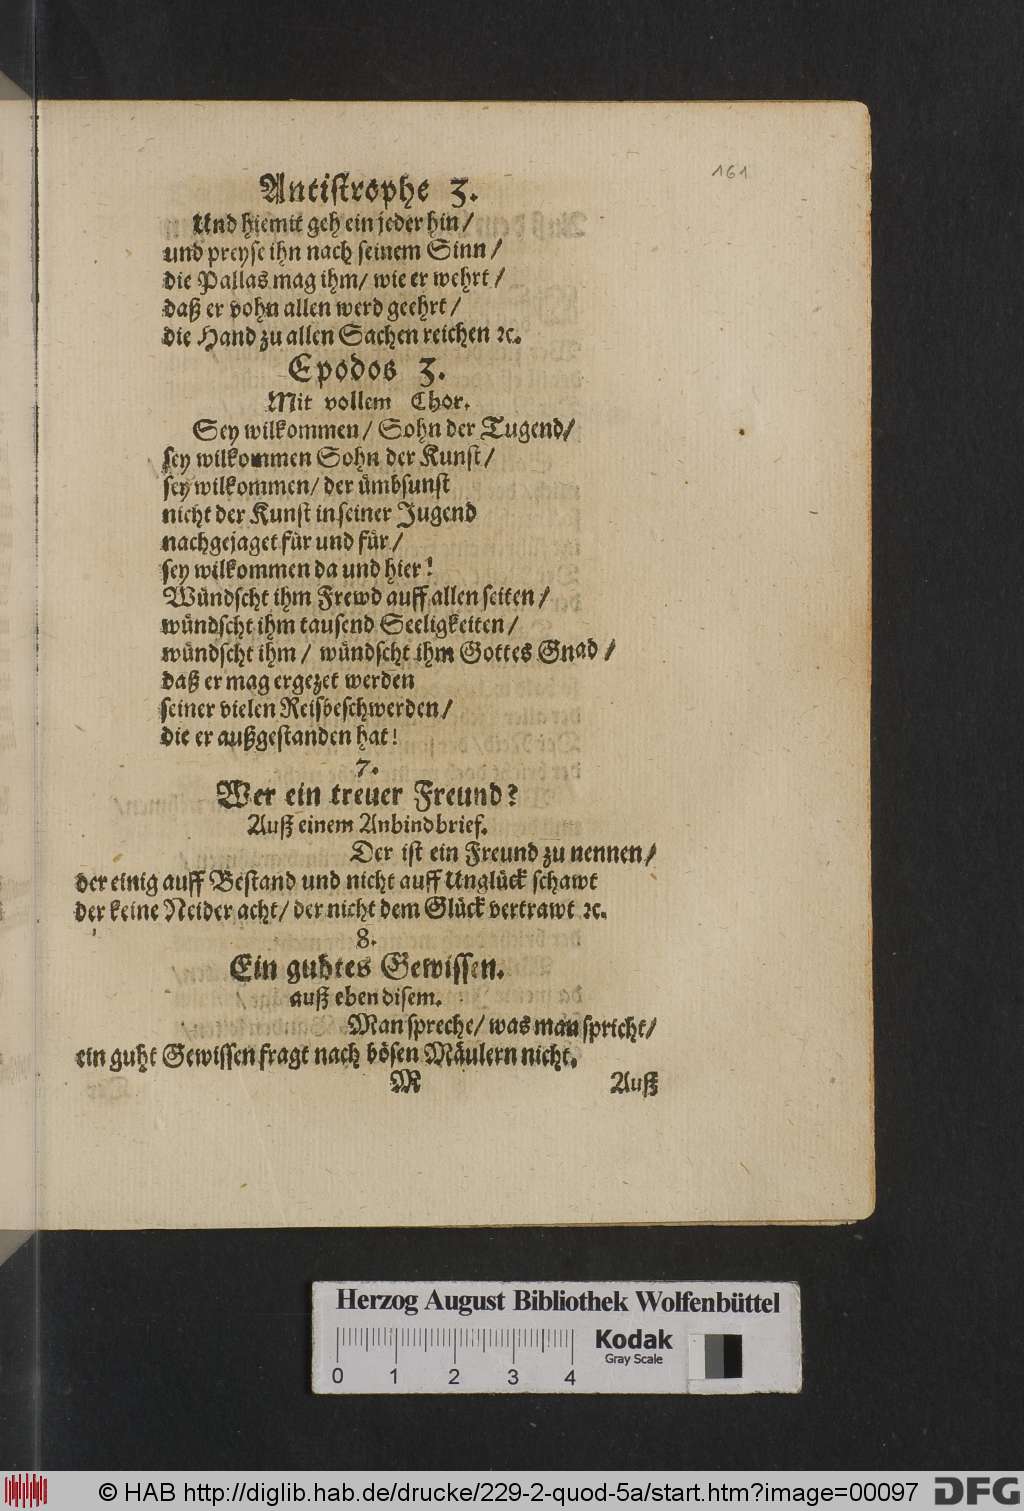 161
Antistrophe 3.
Und hiemit geh ein jeder hin/
und preyse ihn nach seinem Sinn/
die Pallas mag ihm/ wie er wehrt/
daß er vohn allen werd geehrt/
die Hand zu allen Sachen reichen ꝛc.
Epodos 3.
Mit vollem Chor.
Sey wilkommen/ Sohn der Tugend/
sey wilkommen Sohn der Kunst/
sey wilkommen/ der ümbsunst
nicht der Kunst in seiner Jugend
nachgejaget für und für/
sey wilkommen da und hier!
Wündscht ihm Frewd auff allen seiten/
wündscht ihm tausend Seeligkeiten/
wündscht ihm/ wündscht ihm Gottes Gnad/
daß er mag ergezet werden
seiner vielen Reisbeschwerden/
die er außgestanden hat!
7.
Wer ein treuer Freund?
Auß einem Anbindbrief.
Der ist ein Freund zu nennen/
der einig auff Bestand und nicht auff Unglück schawt
der keine Neider acht/ der nicht dem Glück vertrawt ꝛc.
8.
Ein guhtes Gewissen.
auß eben disem.
Man spreche/ was man spricht/
ein guht Gewissen fragt nach bösen Mäulern nicht.
M Auß
Herzog August Bibliothek Wolfenbüttel
Kodak
Gray Scale
0 1 2 3 4
© HAB http://diglib.hab.de/drucke/229-2-quod-5a/start.htm?image=00097
DFG